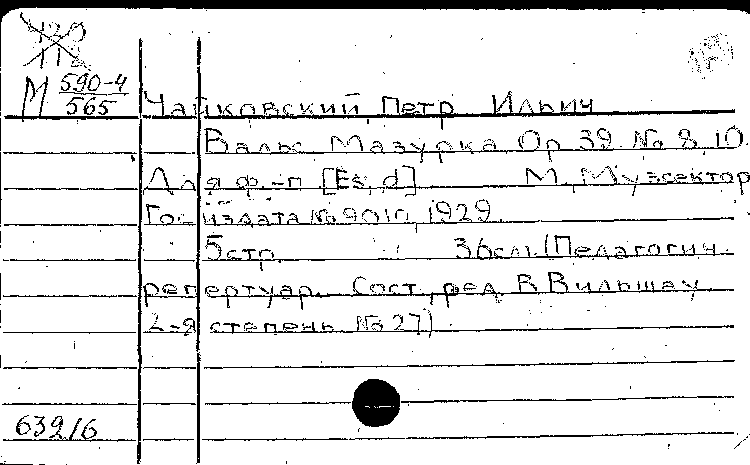 М 590-4
565
Чайковский, Петр Ильич
Вальс. Мазурка. Op. 39. № 8, 10.
Для ф.-п. [Es, d] М., Музсектор
Госиздата № 9010, 1929.
5 стр. 36 см. (Педагогич.
репертуар. Сост., ред. В. Вильшау.
2-я степень № 27)
639/6